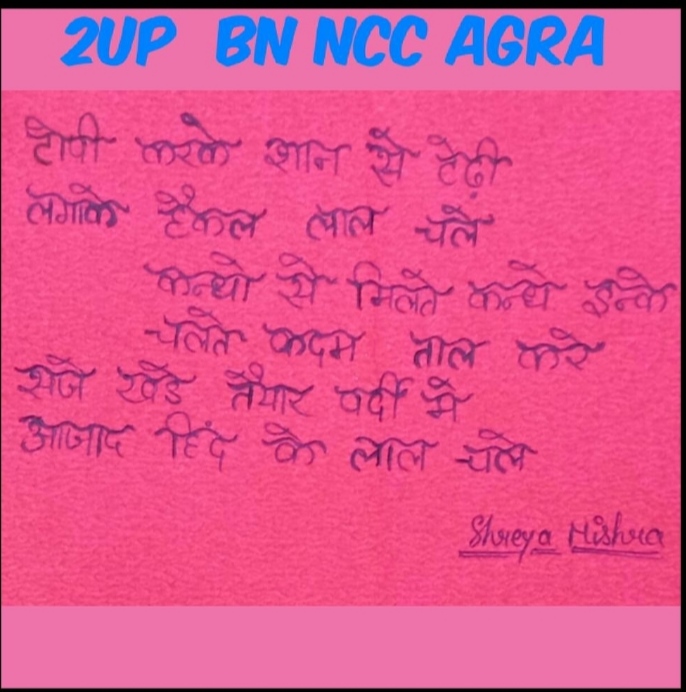 2UP BN NCC AGRA
टोपी करके शान से टेढ़ी
लगाके हैकल लाल चले
कन्धो से मिलते कन्धे इनके
चलते कदम ताल करे
सजे खडे तैयार वर्दी मे
आजाद हिंद के लाल चले
Shreya Mishra